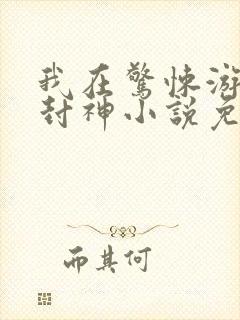 我在驚悚游
封神小說免
而其何